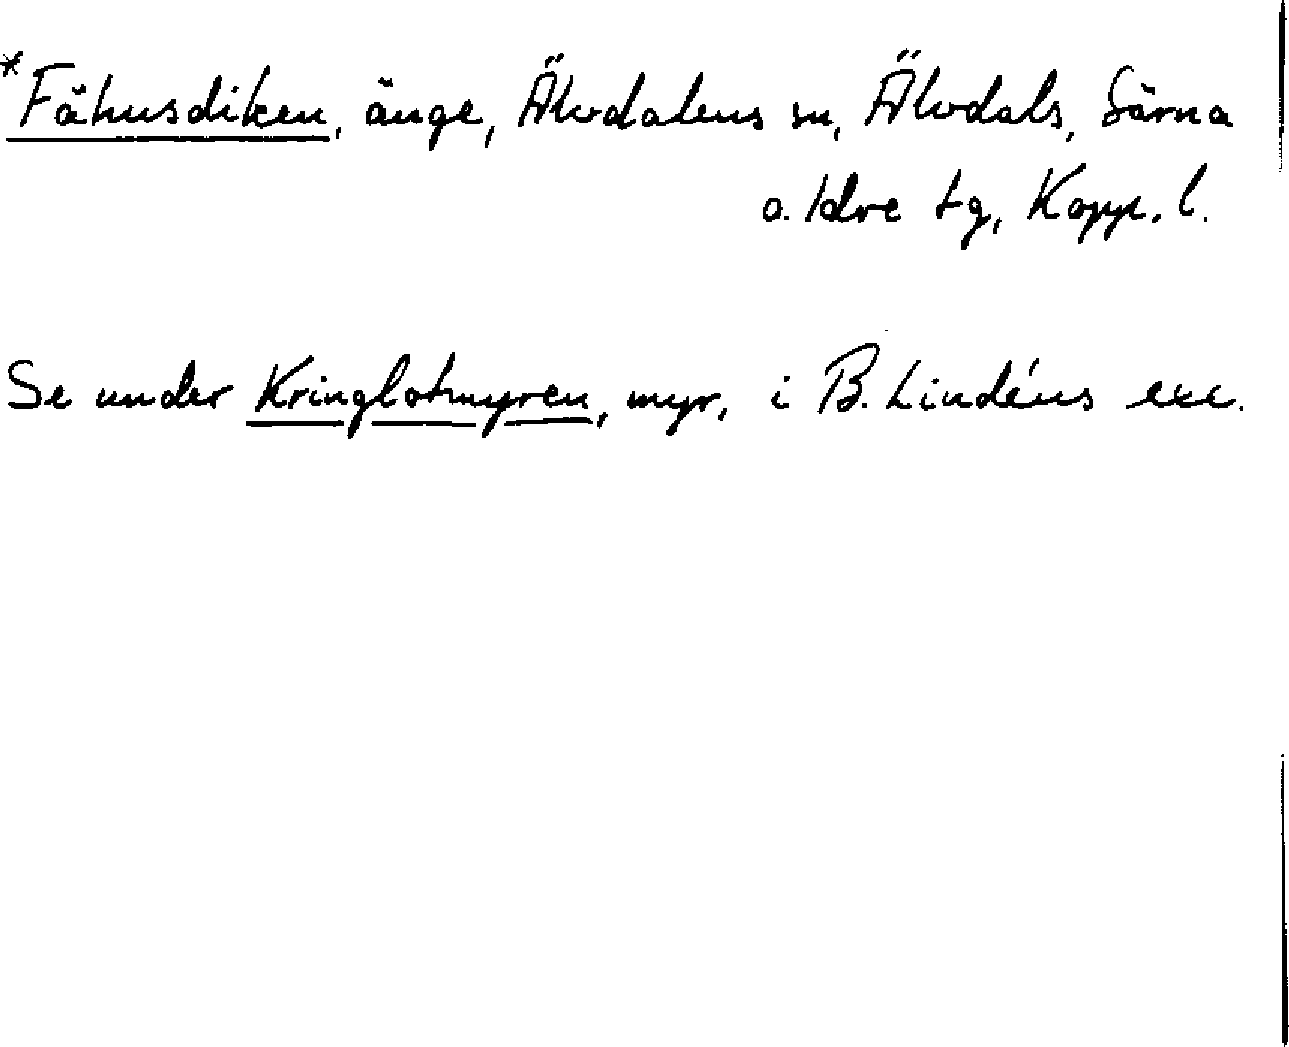 *Fähusdiken, änge, Älvdalens sn, Älvdals, Särna
o. Idre tg, Kopp. l.
Se under Kringlotmyren, myr, i B. Lindéns exc.